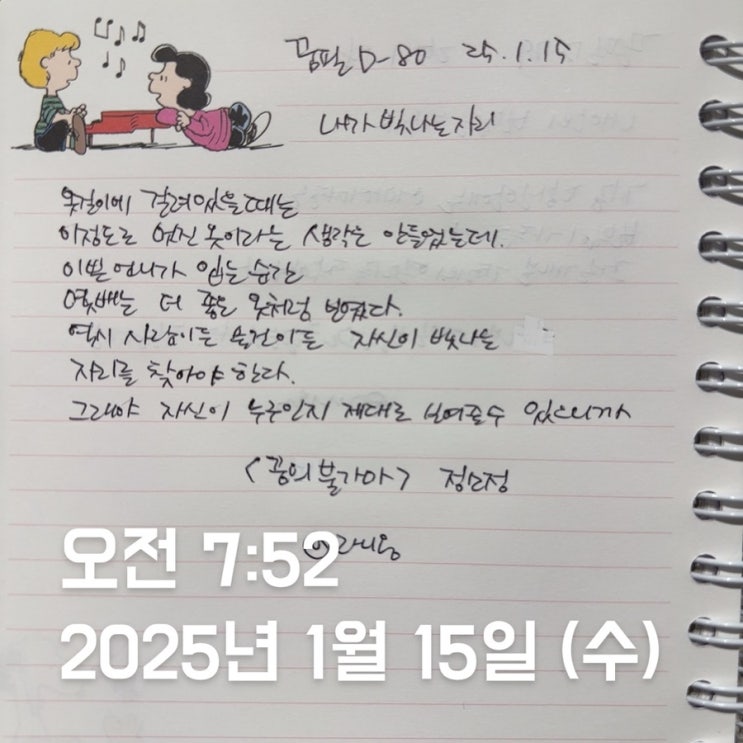 꿈필 D-80 25.1.15
내가 빛나는 자리
옷걸이에 걸려있을때는
이정도로 멋진 옷이라는 생각은 안들었는데.
이쁜 언니가 입는 순간
몇배는 더 좋은 옷처럼 보였다.
역시 사람이든 물건이든 자신이 빛나는
자리를 찾아야 한다.
그래야 자신이 누구인지 제대로 보여줄수 있으니까
<꿈의 불가마> 정소정
오전 7:52
2025년 1월 15일 (수)